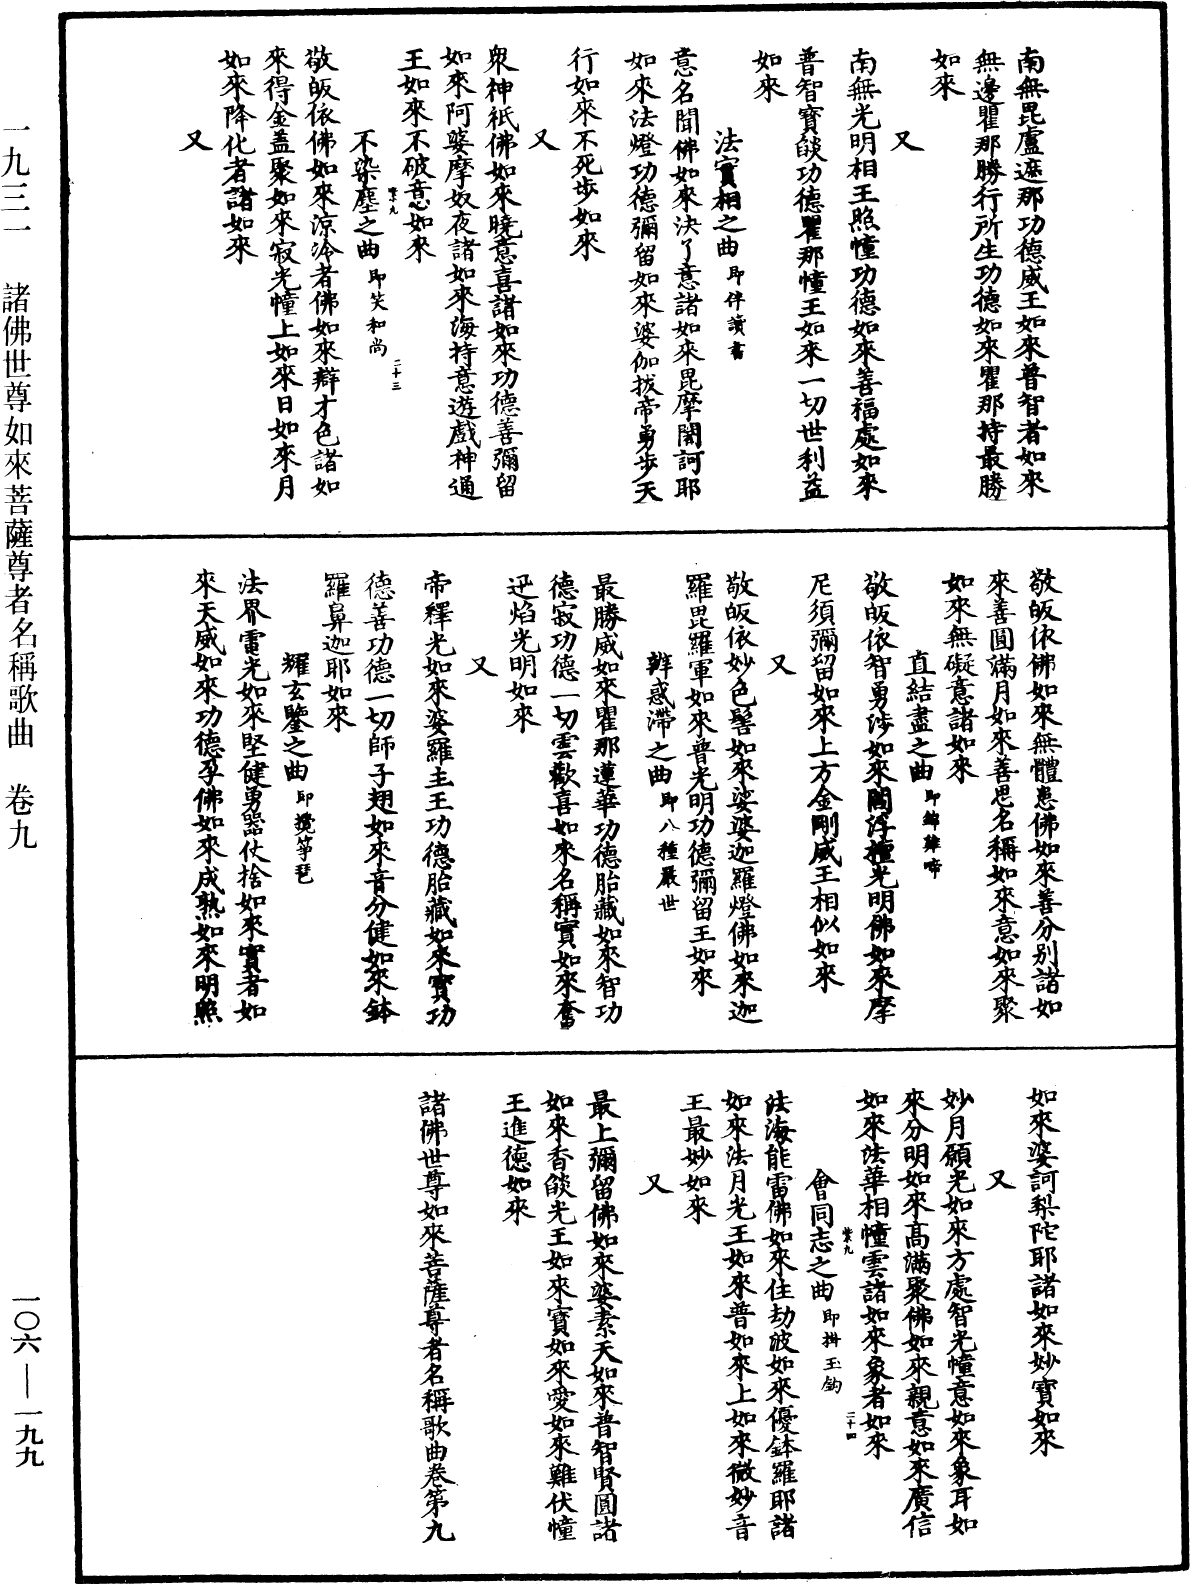 南無毘盧遮那功德威王如來普智者如來
無邊瞿那勝行所生功德如來瞿那持最勝
如來
又
南無光明相王照幢功德如來善福處如來
普智寶燄功德瞿那幢王如來一切世利益
如來
法實相之曲 即伴讀書
意名聞佛如來決了意諸如來毘摩闍訶耶
如來法燈功德彌留如來婆伽拔帝勇步天
行如來不死步如來
又
衆神祇佛如來曉意喜諸如來功德善彌留
如來阿婆摩奴夜諸如來海持意遊戲神通
王如來不破意如來
不染塵之曲 即笑和尚
紫九 二十三
敬皈依佛如來涼冷者佛如來辯才色諸如
來得金蓋聚如來寂光幢上如來日如來月
如來降化者諸如來
又
敬皈依佛如來無體患佛如來善分別諸如
來善圓滿月如來善思名稱如來意如來聚
如來無礙意諸如來
直結盡之曲 即錦雞啼
敬皈依智勇涉如來閻浮檀光明佛如來摩
尼須彌留如來上方金剛威王相似如來
又
敬皈依妙色髻如來娑婆迦羅燈佛如來迦
羅毘羅軍如來普光明功德彌留王如來
辨惑滯之曲 即八種嚴世
最勝威如來瞿那蓮華功德胎藏如來智功
德寂功德一切雲歡喜如來名稱實如來奮
迅焰光明如來
又
帝釋光如來婆羅主王功德胎藏如來寶功
德善功德一切師子翅如來音分健如來鉢
羅鼻迦耶如來
耀玄鑒之曲 即攪箏琶
法界電光如來堅健勇器仗捨如來實者如
來天威如來功德孚佛如來成熟如來明照
如來婆訶梨陀耶諸如來妙寶如來
又
妙月願光如來方處智光幢意如來象耳如
來分明如來高滿聚佛如來親意如來廣信
如來法華相幢雲諸如來象者如來
會同志之曲 即掛玉鈎
紫九 二十四
法海能雷佛如來住劫波如來優鉢羅耶諸
如來法月光王如來普如來上如來微妙音
王最妙如來
又
最上彌留佛如來婆素天如來普智賢圓諸
如來香燄光王如來寶如來愛如來難伏幢
王進德如來
諸佛世尊如來菩薩尊者名稱歌曲卷第九
一九三一 諸佛世尊如來菩薩尊者名稱歌曲 卷九
一〇六—一九九